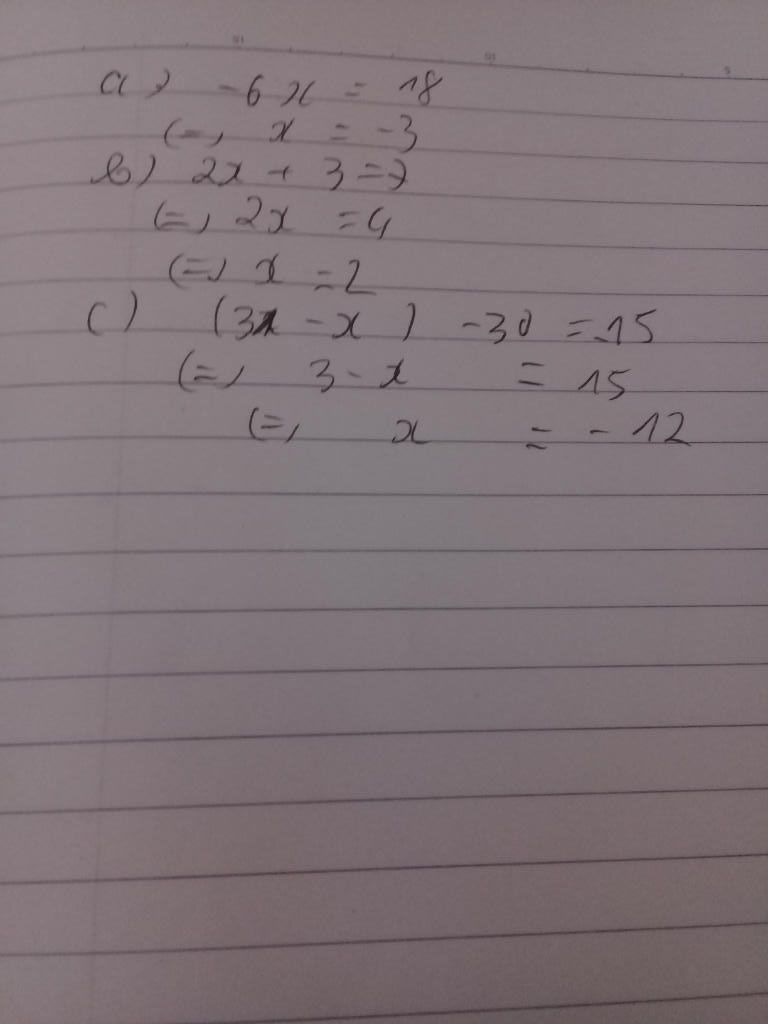 a) -6x = 18
(=) x = -3
b) 2x + 3 = 7
(=) 2x = 4
(=) x = 2
c) (31 - x) - 30 = 15
(=) 3 - x = 15
(=) x = - 12